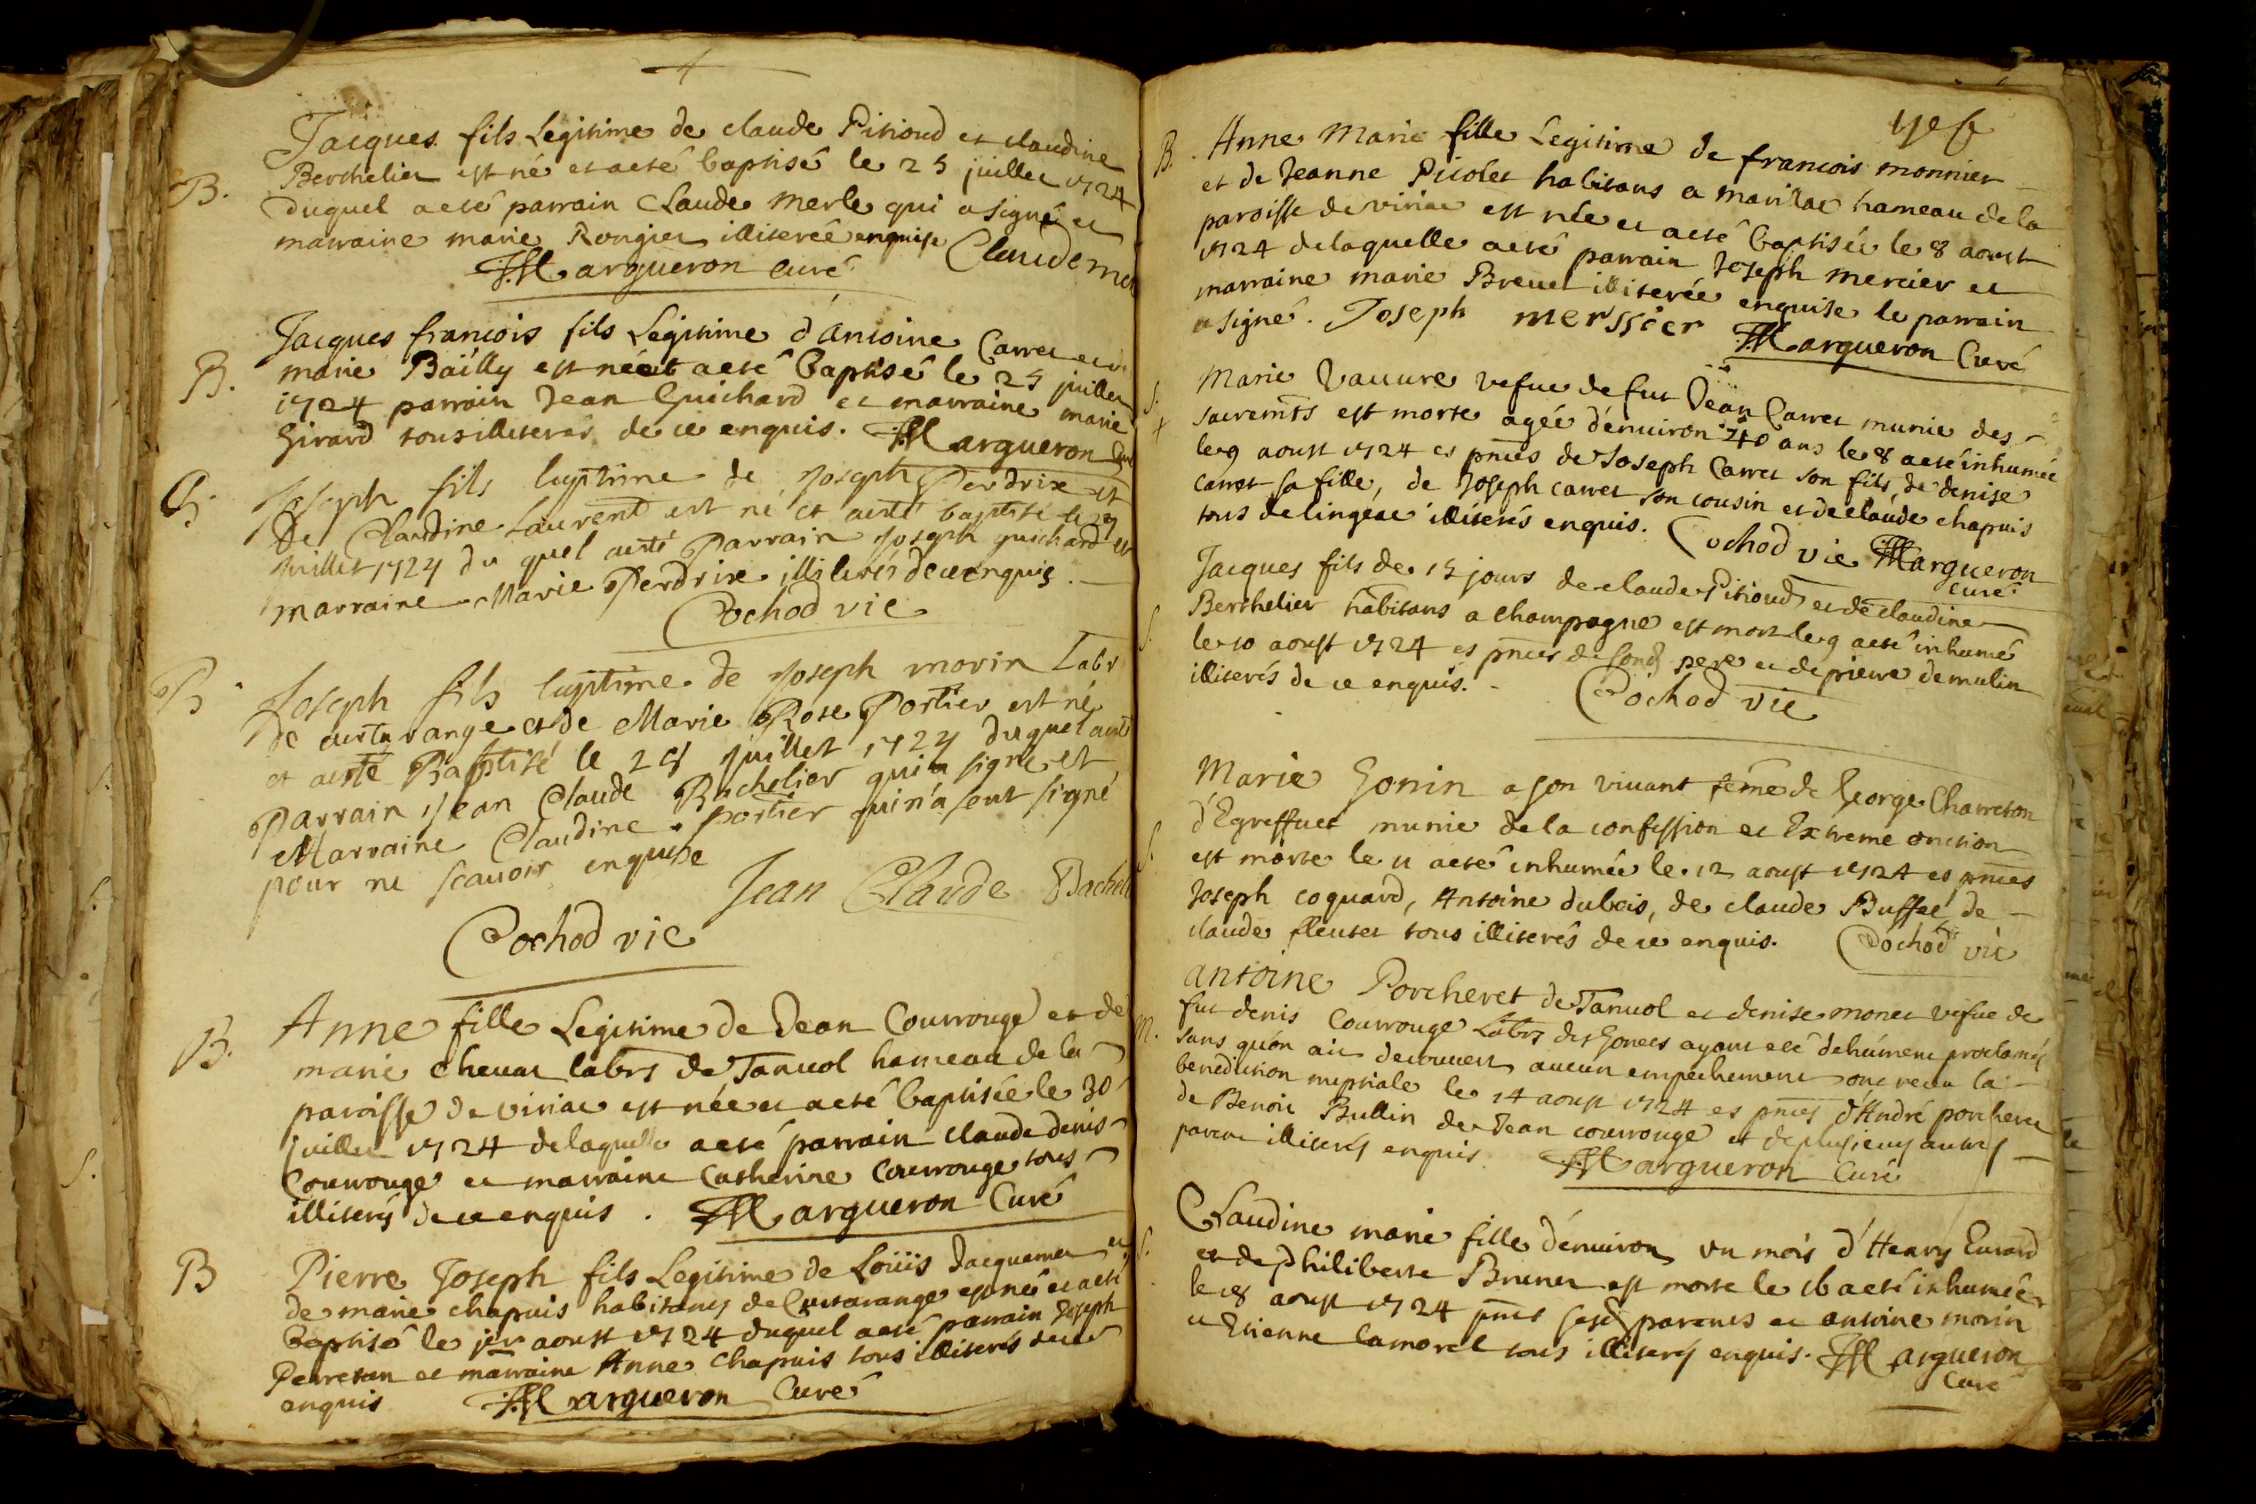 Jacques fils Legitime de claude Pitioud et claudine
B. Berthelier est né et aeté baptisé le 25 juillet 1724
duquel aeté parrain Claude Merle qui a signé et
marraine marie Rougier illiterée enquise Claude mer
Margueron curé
Jacques francois fils Legitime d'antoine Carret et
B. marie Bailly est né et aeté baptisé le 25 juillet
1724 parrain Jean Guichard et marraine marie
Girard tous illiterés de ce enquis. Margueron
B. Joseph fils legitime de Joseph Perdrix et
de Claudine Laurent est né et aesté baptisé le
Juillet 1724 du quel aesté Parrain Joseph guichard et
marraine Marie Perdrix illiterés de ce enquis.
Cochod vic
B Joseph fils legitime de Joseph morin Labr
de curtarange et de Marie Rose Portier est né
et aesté Baptisé le juillet 1724 duquel aesté
Parrain Jean Claude Bachelier qui a signé et
Marraine Claudine portier qui n'a sceut signé
pour ne scavoir enquise
Jean Claude Bachel
Cochod vic
B. Anne fille Legitime de Jean Courrouge et de
marie chevat labrs de Tanvol hameau de la
paroisse de viriac est née et aeté baptisée le 30
juillet 1724 de laquelle aeté parrain claude denis
Courrouge et marraine Catherine Courrouge tous
illiterés de ce enquis. Margueron Curé
B Pierre Joseph fils Legitime de Loüis Jacquemet et
de marie chapuis habitants de Curtarange est né et aeté
baptisé le jer aoust 1724 duquel aeté parrain Joseph
Perretan et marraine Anne chapuis tous illiterés de ce
enquis Margueron Curé
B. Anne Marie fille Legitime de francois monnier
et de Jeanne Picolet habitans a marillac hameau de la
paroisse de viriac est née et aeté baptisée le 8 aoust
1724 de laquelle aeté parrain Joseph mercier et
marraine marie Brevet illiterée enquise le parrain
a signé. Joseph merssier Margueron Curé
S. Marie Vauure vefue de fut Jean Carret munie des
sacremts est morte agée d'enuiron 40 ans le 8 aeté inhumée
le 9 aoust 1724 es pnces de Joseph Carret son fils, de denise
carret sa fille, de Joseph carret son cousin et de claude chapuis
tous de lingeac illiterés enquis. Cochod vic Margueron
curé
Jacques fils de 15 jours de claude Pitioud et de claudine
S. Berthelier habitans a champagne est mort le 9 aeté inhumé
le 10 aoust 1724 es pnces de sond pere et de pierre demulin
illiterés de ce enquis. Cochod vic
Marie Gonin a son vivant feme de George Charreton
S. d'Egreffuet munie de la confession et Extreme onction
est morte le 11 aeté inhumée le 12 aoust 1724 es pnces
Joseph coquard, Antoine dubois, de claude Buffet, de
claude fleuret tous illiterés de ce enquis. Cochod vic
antoine Porcheret de Tanvol et denise monet vefue de
m. fut denis Courrouge Labrs des Gonets ayant eté dehument proclamés
sans qu'on ait decouuert aucun empechement ont receu la
benediction nuptiale le 14 aoust 1724 es pnces d'André porcheret
de Benoit Bullin de Jean courrouge et de plusieurs autres
parens illiterés enquis Margueron Curé
S. Claudine marie fille d'enuiron un mois d'Henry Eurard
et de philiberte Brunet est morte le 16 aeté inhumée
le 18 aoust 1724 pnces sesd parents et antoine morin
et Etienne lamorel tous illiterés enquis. Margueron
Curé